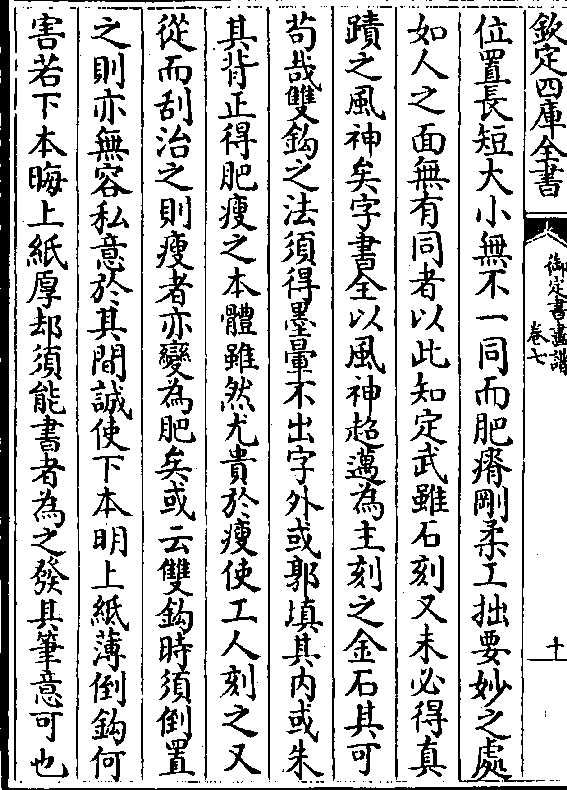 欽定四庫全書
御定書畫譜
卷七
十
位置長短大小無不一同而肥瘠剛柔工拙要妙之處
如人之面無有同者以此知定武雖石刻又未必得真
蹟之風神矣字書全以風神超邁為主刻之金石其可
苟哉雙鈎之法須得墨暈不出字外或郭填其內或朱
其背正得肥瘦之本體雖然尤貴於瘦使工人刻之又
從而刮治之則瘦者亦變為肥矣或云雙鈎時須倒置
之則亦無容私意於其間誠使下本明上紙薄倒鈎何
害若下本晦上紙厚却須能書者為之發其筆意可也